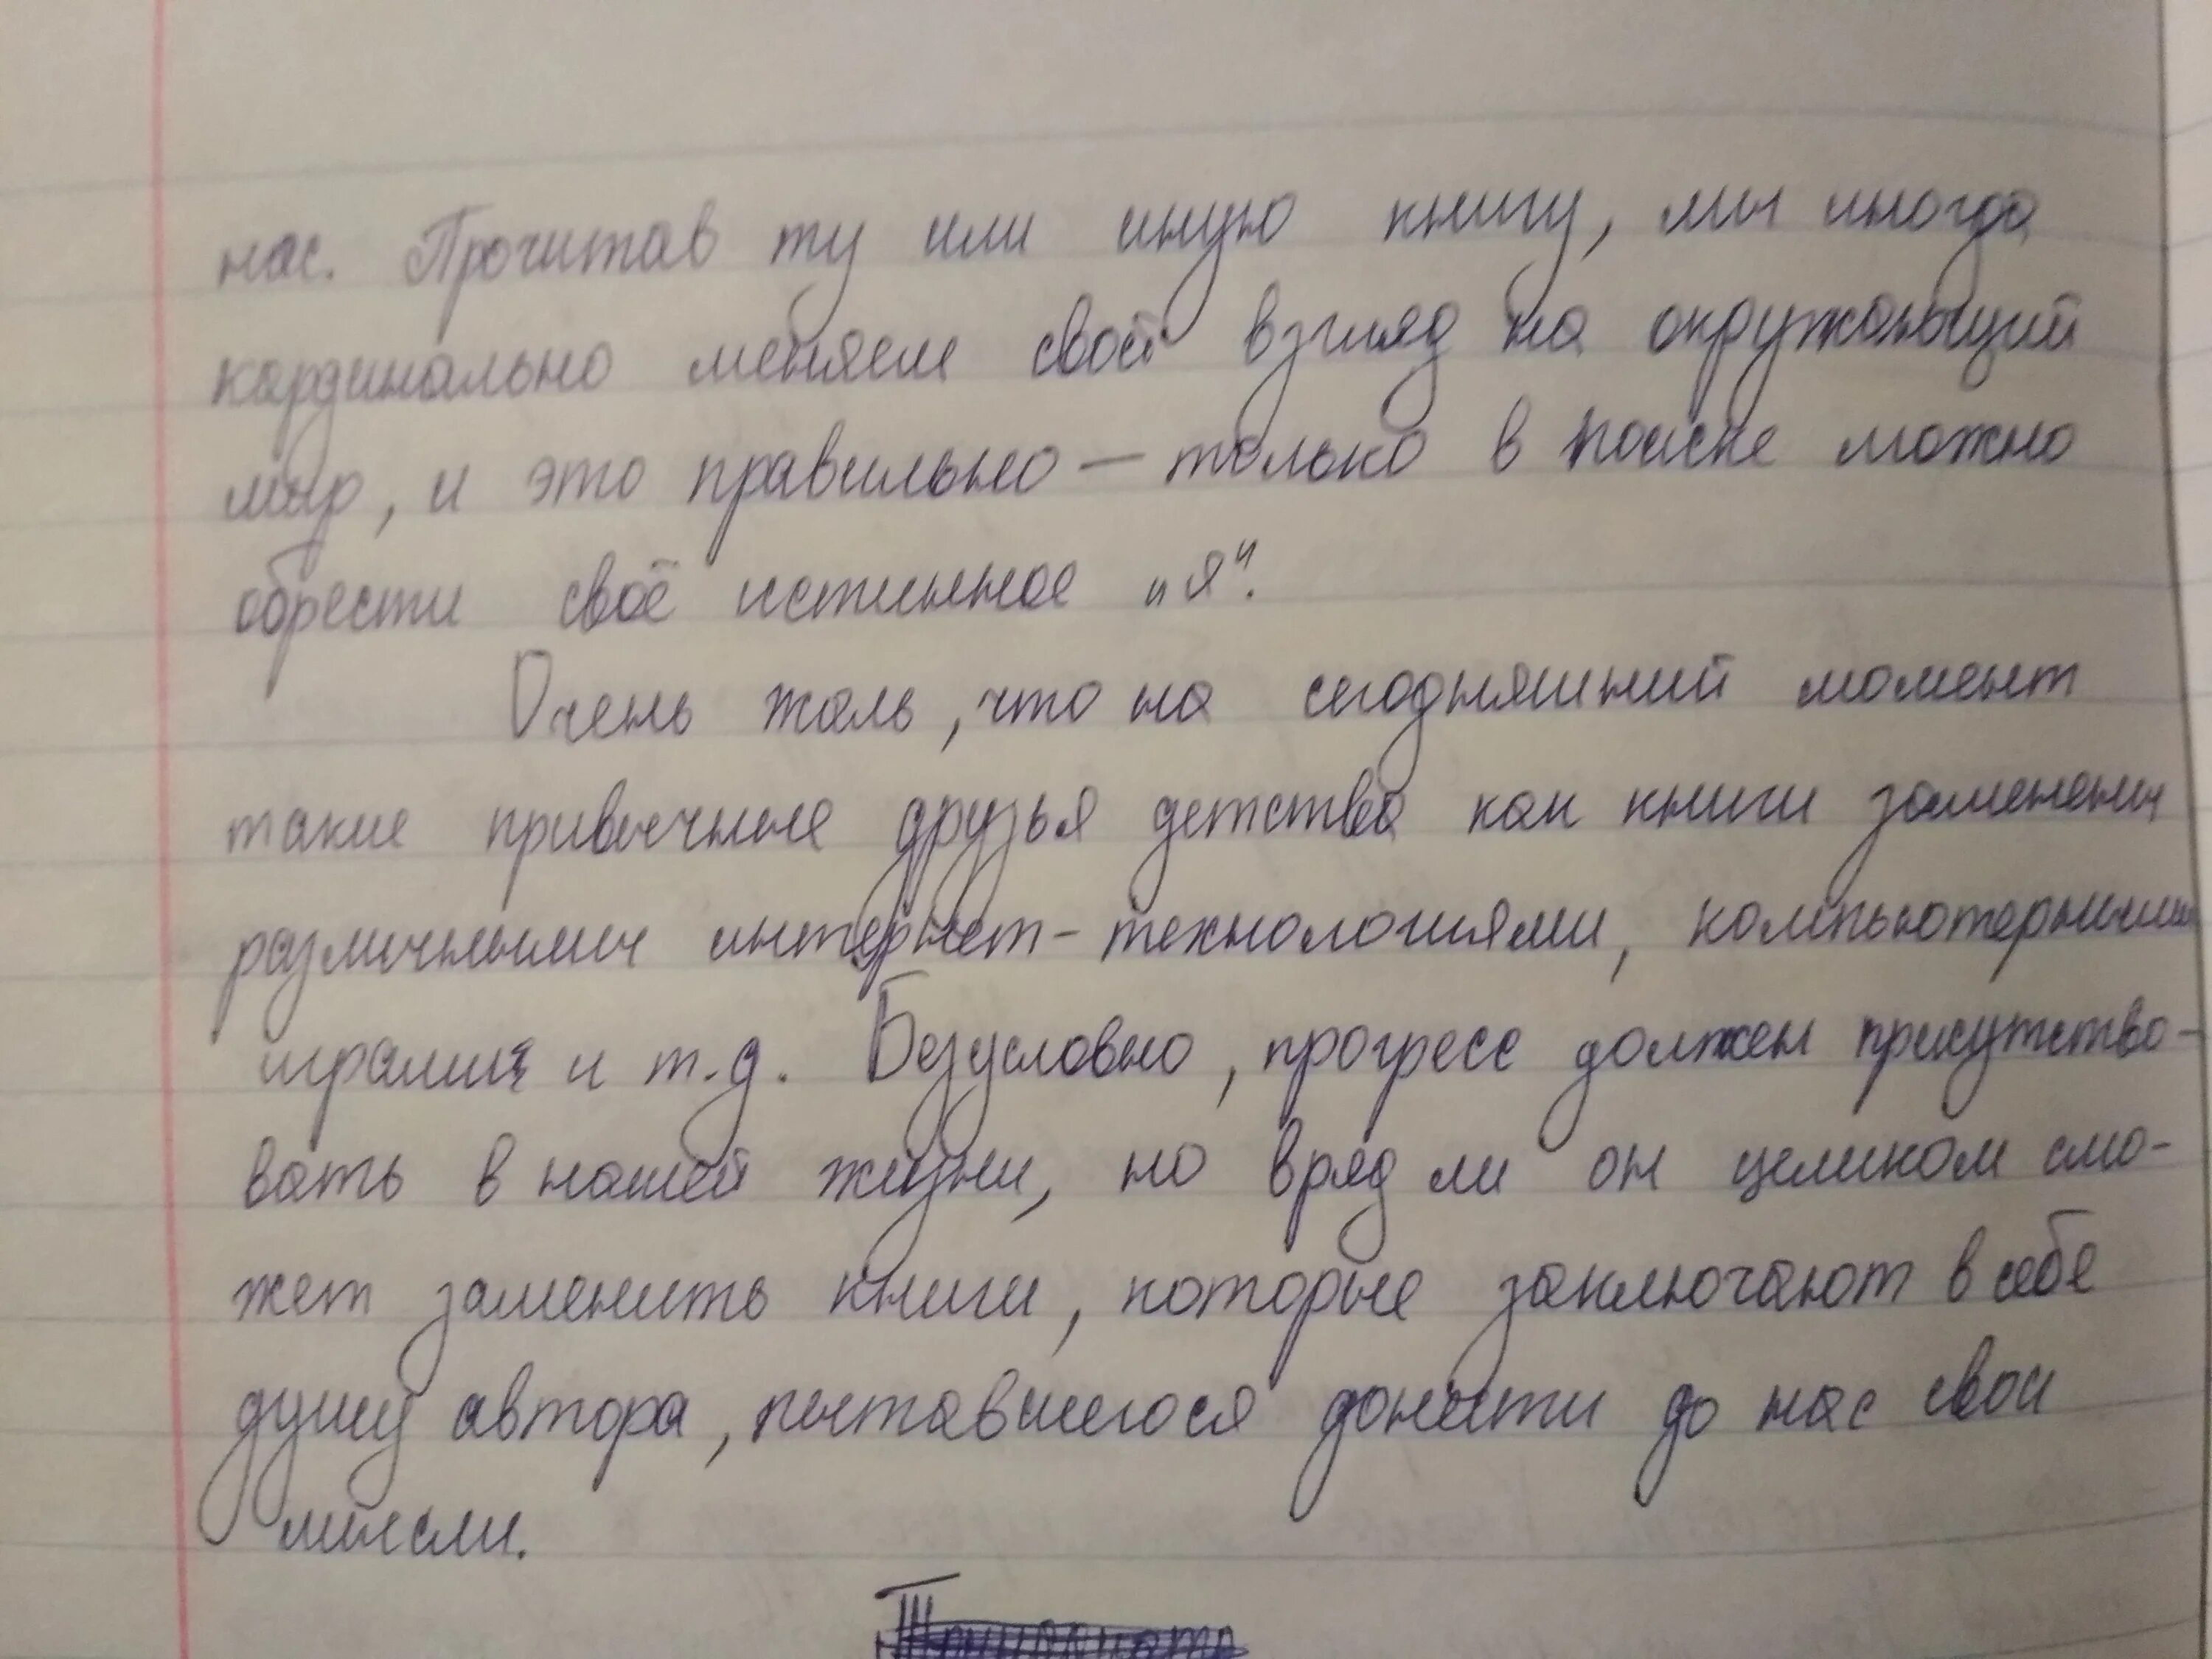 нас. Прочитав ту или иную книгу, мы иногда
кардинально меняем свой взгляд на окружающий
мир, и это правильно — только в поиске можно
обрести своё истинное „я“.
Очень жаль, что на сегодняшний момент
такие привычные друзья детства как книги заменены
различными интернет-технологиями, компьютерными
играми и т.д. Безусловно, прогресс должен присутство-
вать в нашей жизни, но вряд ли он целиком смо-
жет заменить книги, которые заключают в себе
душу автора, пытавшегося донести до нас свои
мысли.